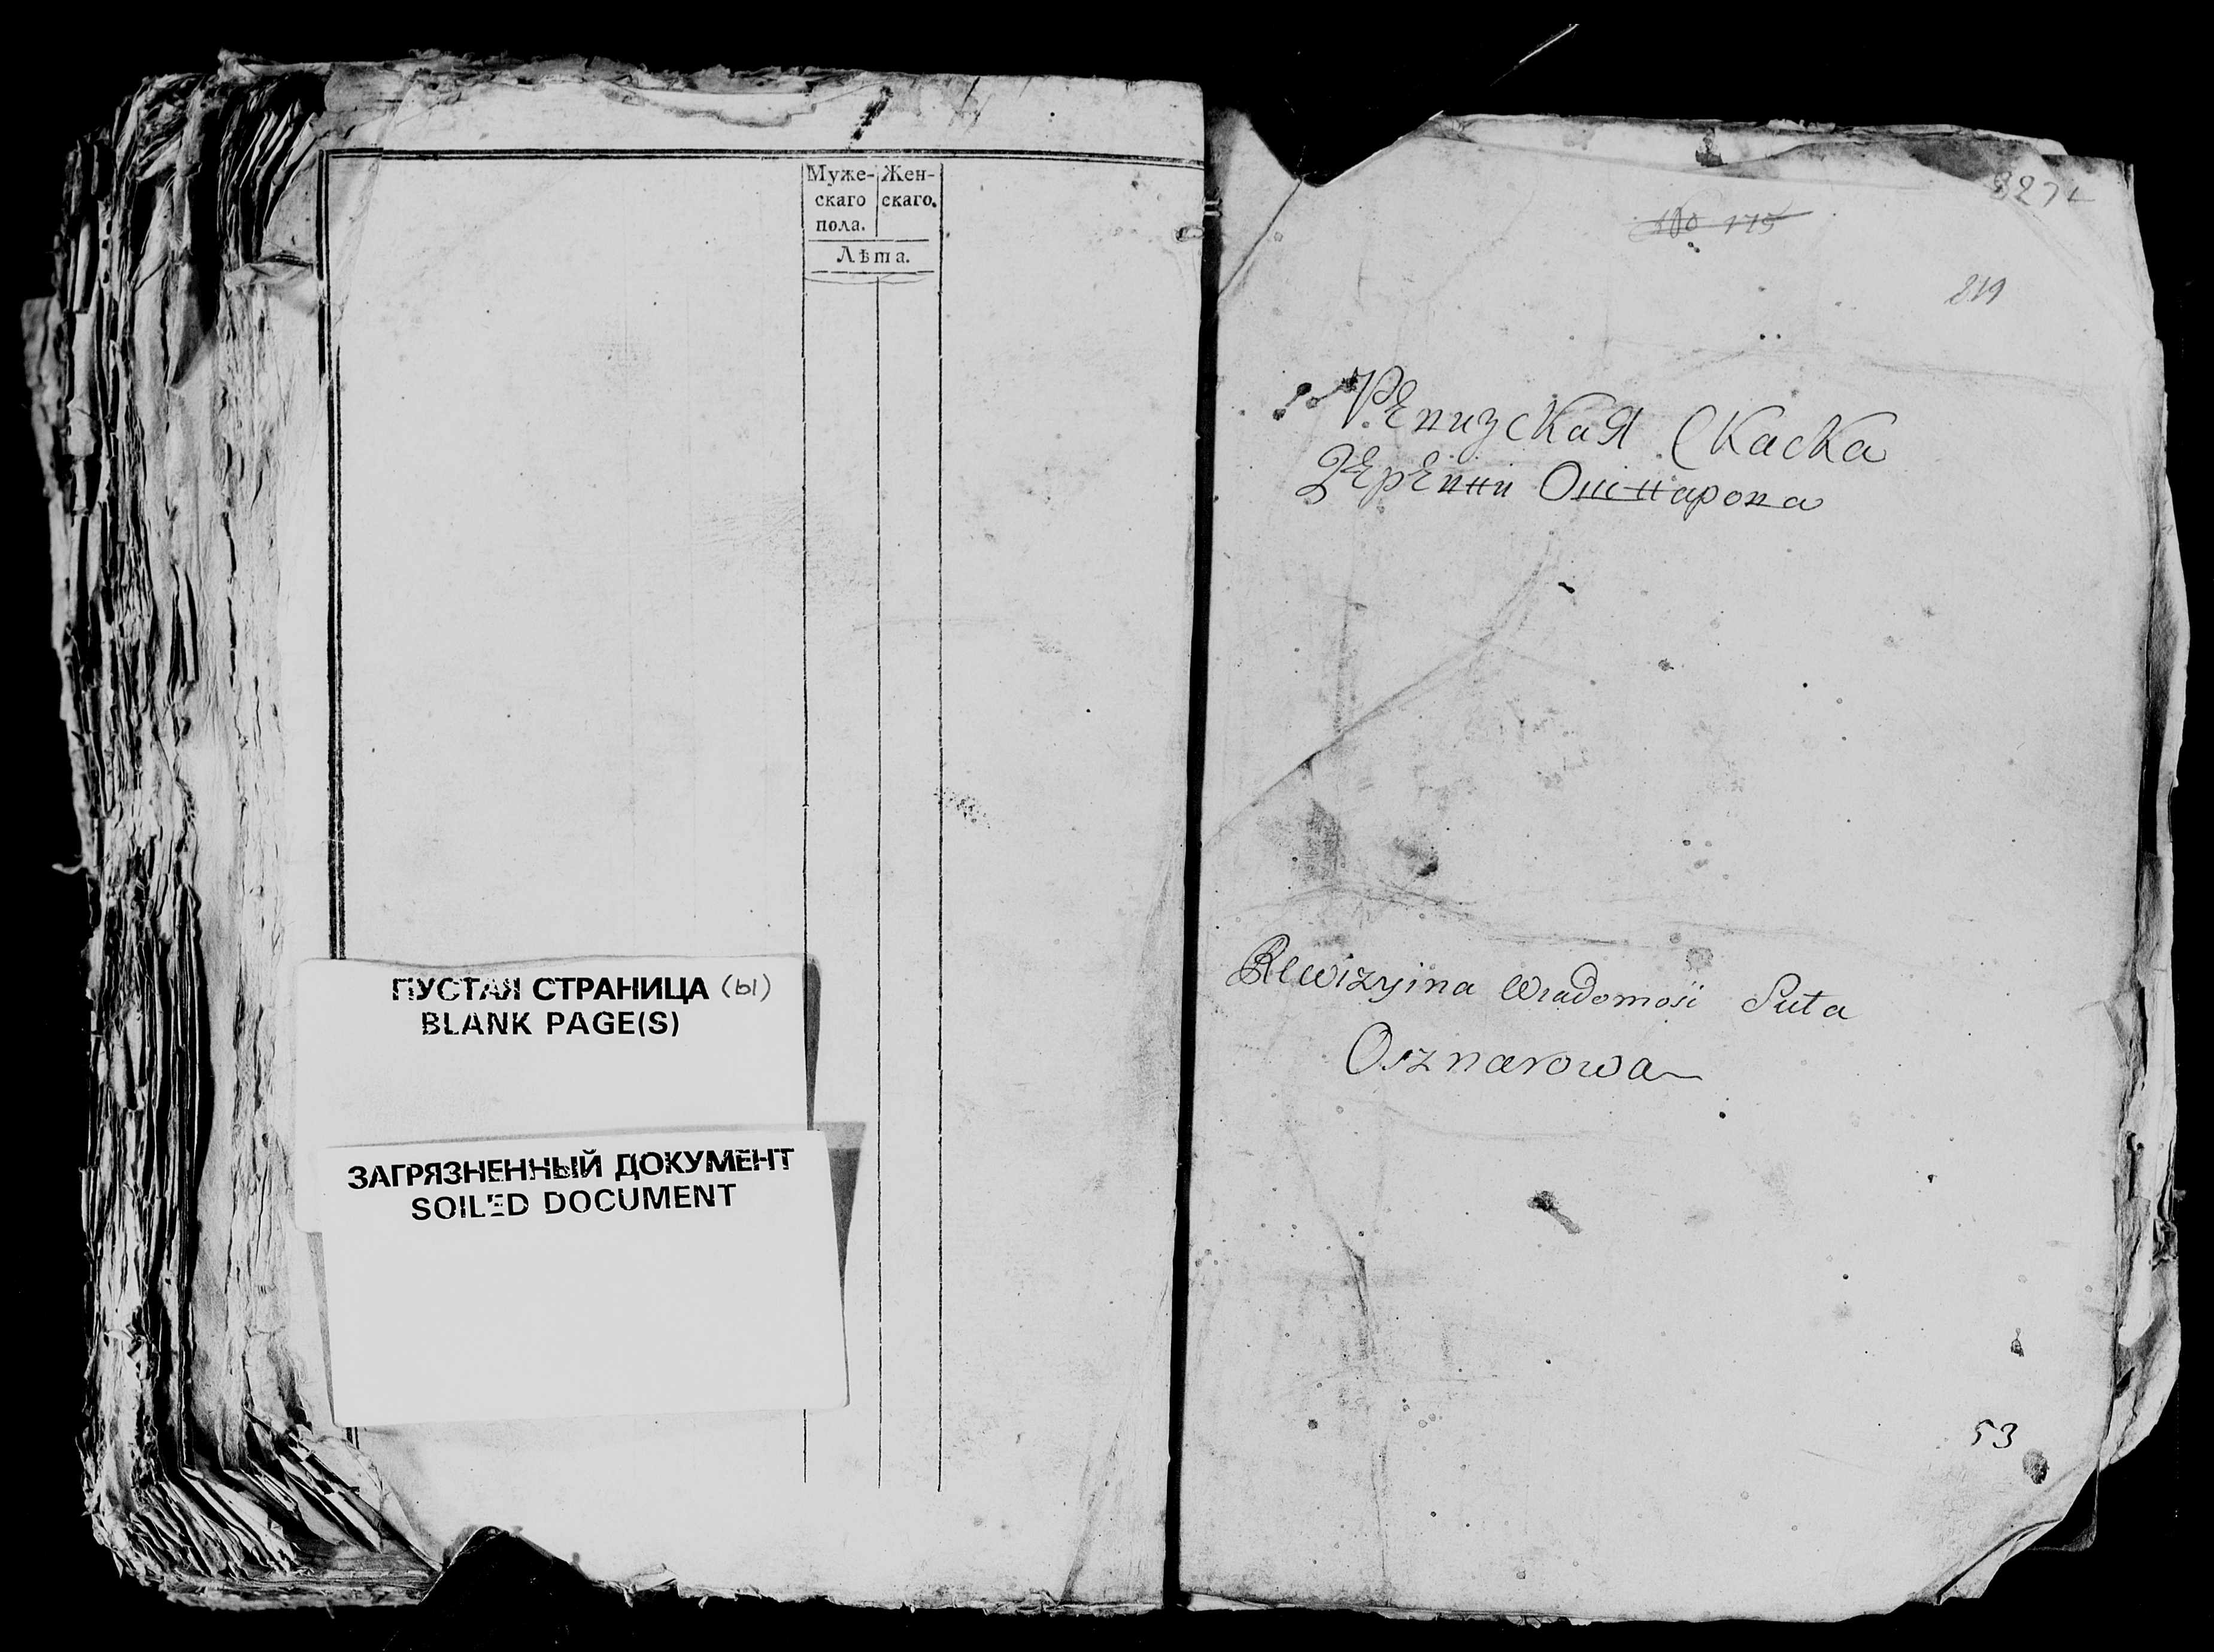 Муже- Жен-
скаго скаго.
пола.
Лѣта.
ПУСТАЯ СТРАНИЦА (ы)
BLANK PAGE(S)
ЗАГРЯЗНЕННЫЙ ДОКУМЕНТ
SOILED DOCUMENT
175
219
Ревизская Скаска
Деревни Ошнарова
Rewizyina Wiadomość Siuta
Osznarowa
53